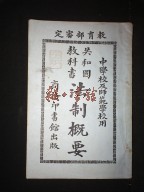 教育部審定
中學校及師範學校用
共和國教科書
法制概要
商務印書館出版